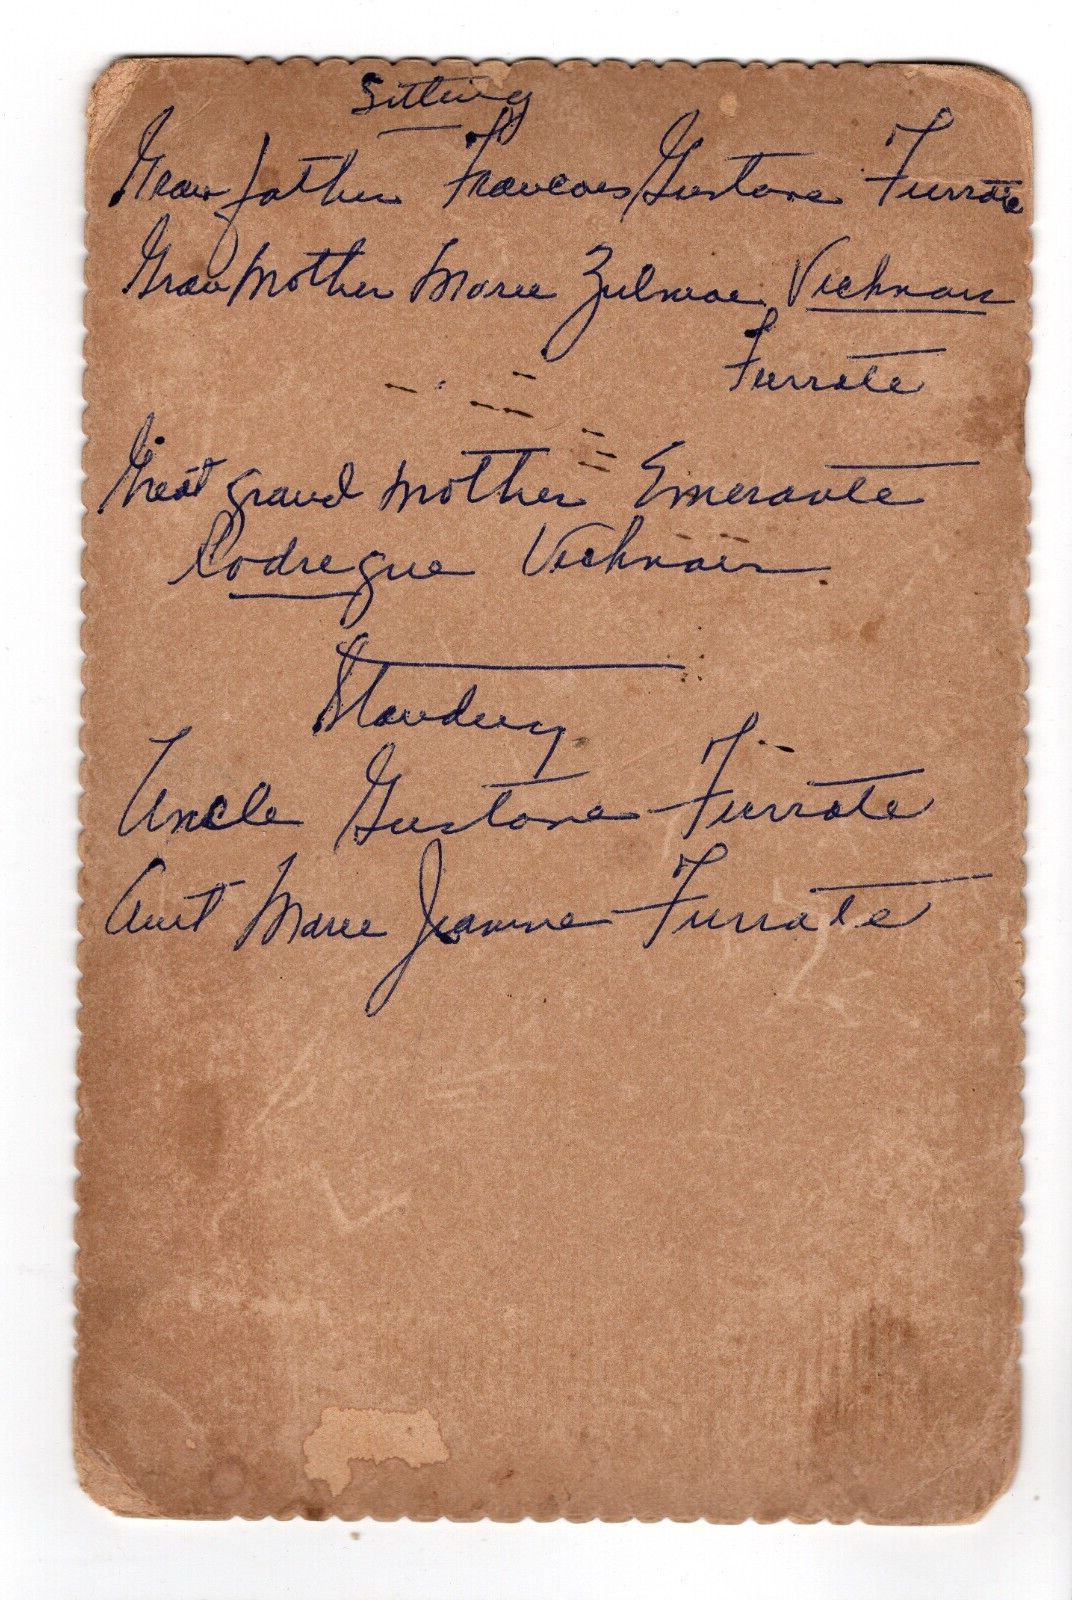 Sitting
Granfather Francois Gustave Furrate
Granmother Marie Zulmae Vichnair
Furrate
Great grand mother Emerante
Rodregue Vichnair
Standing
Uncle Gustave Furrate
Aunt Marie Jeanne Furrate